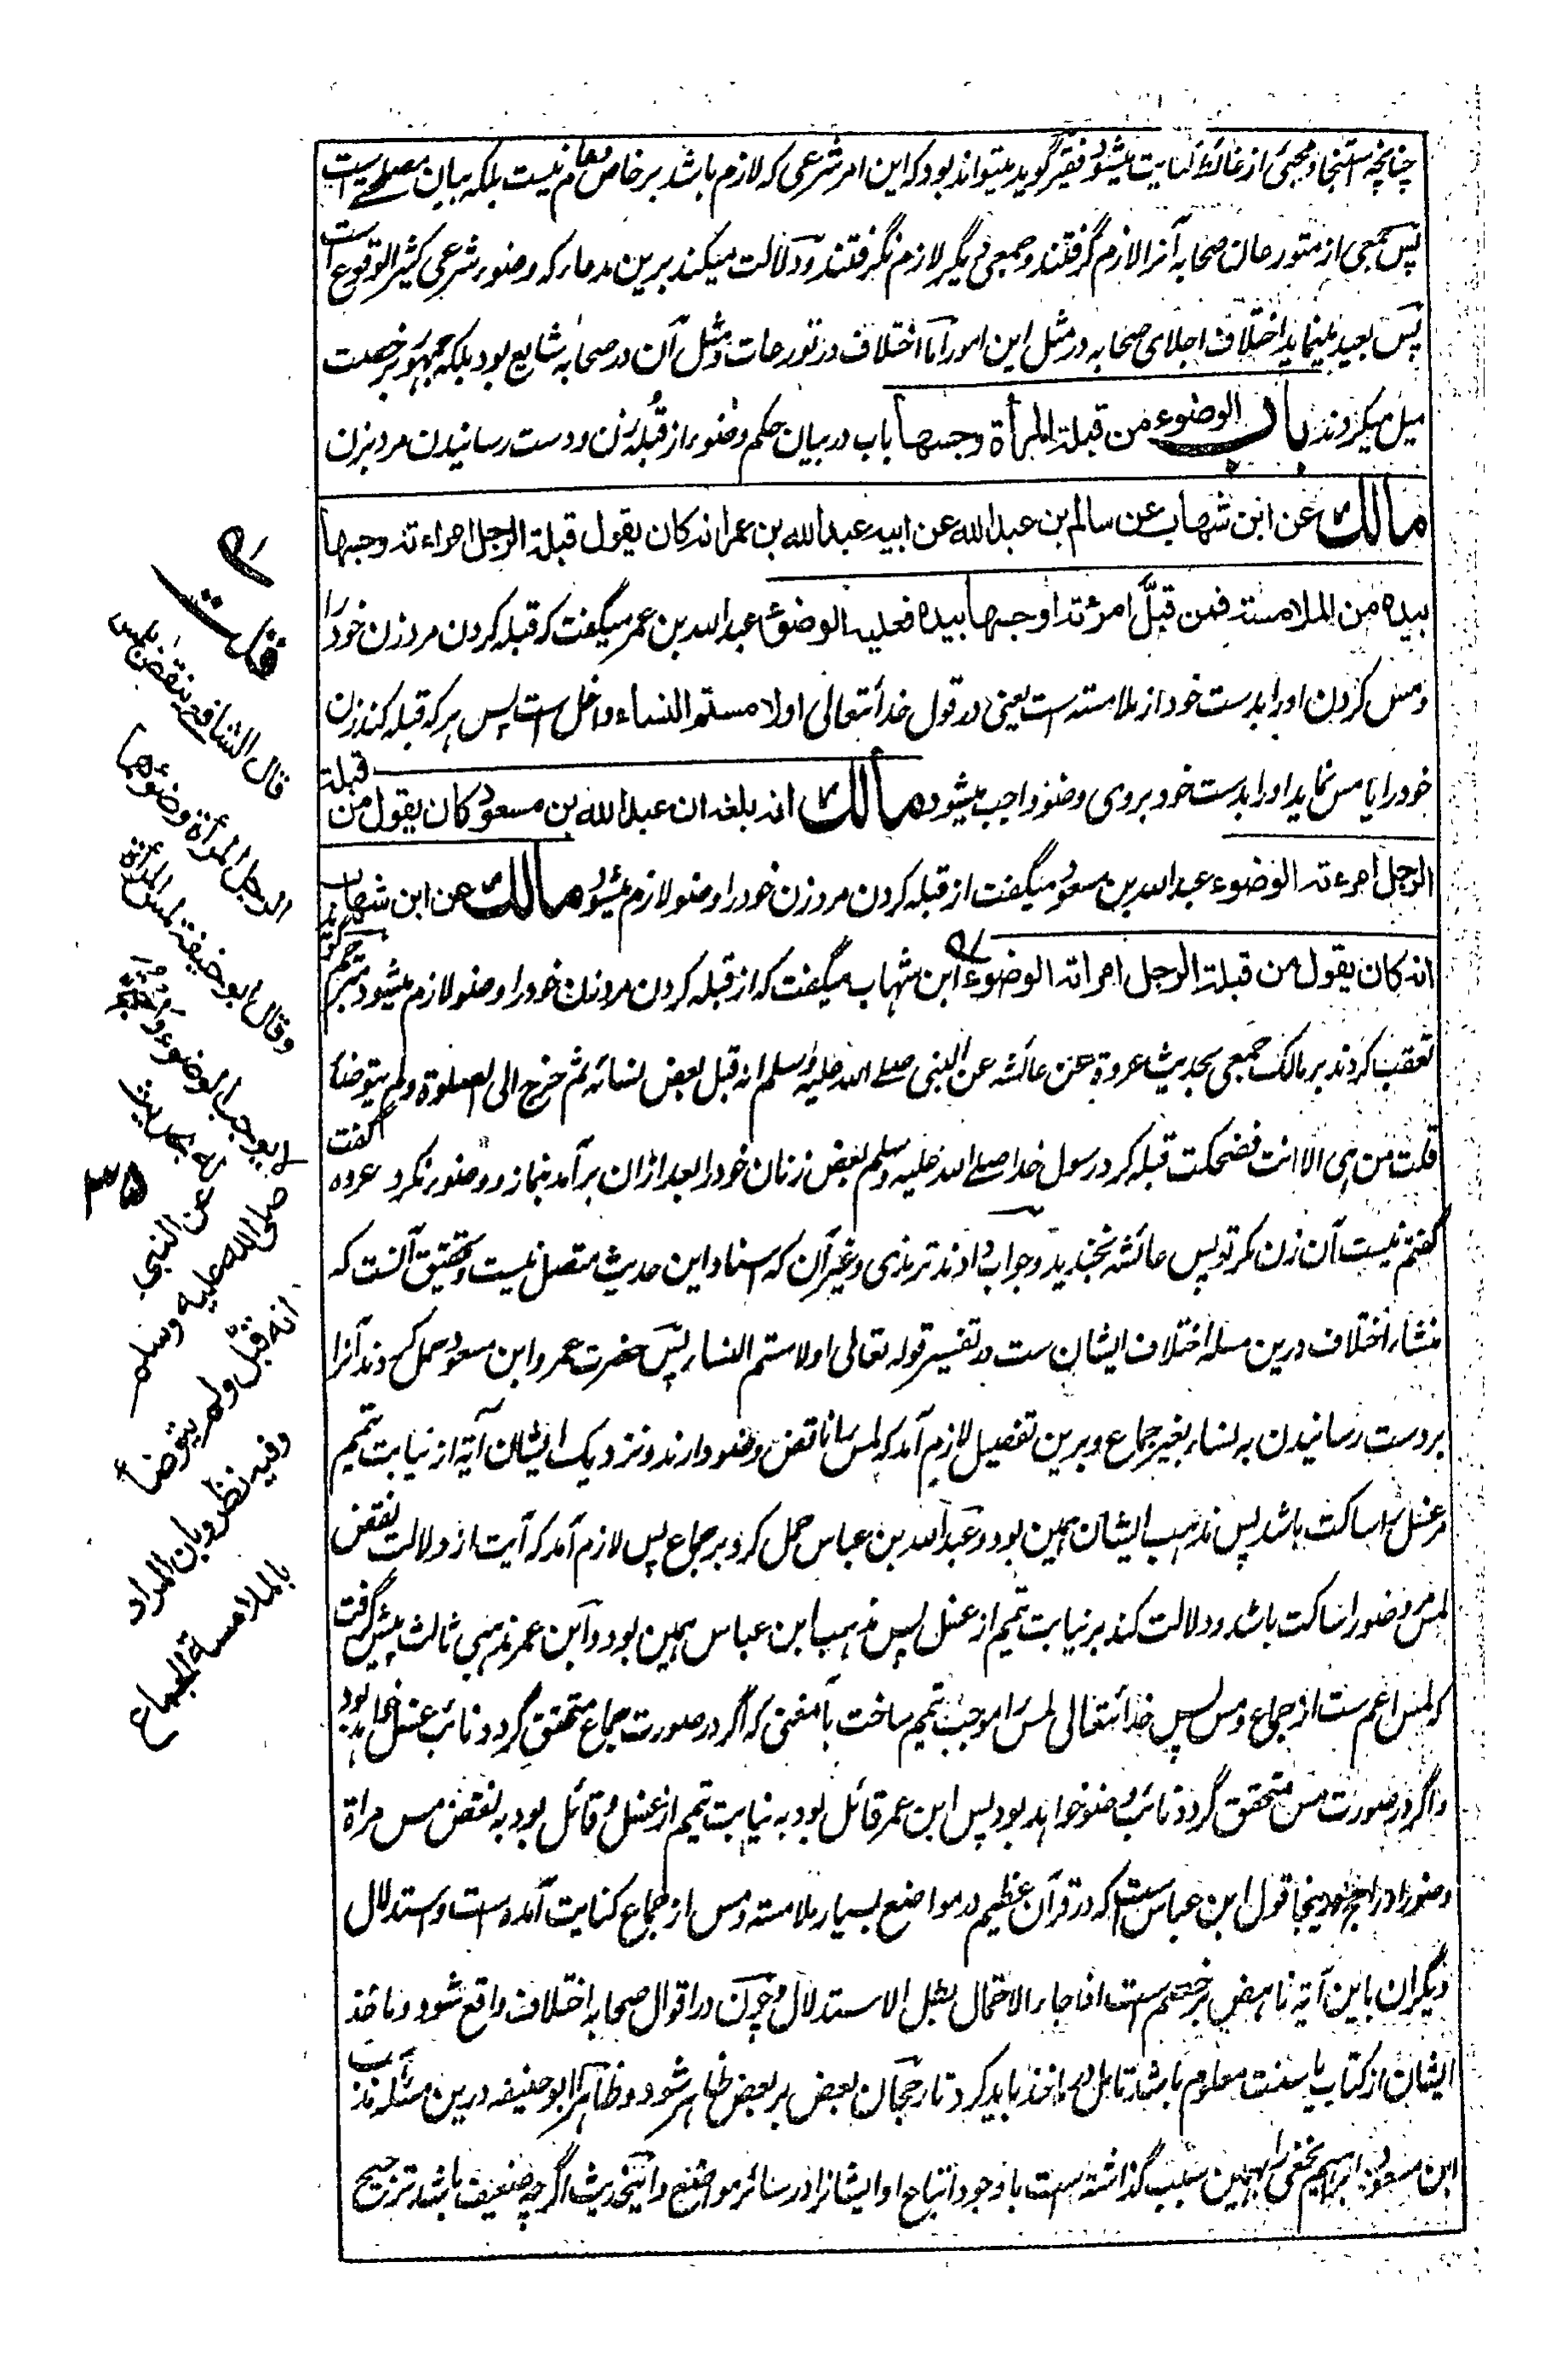 چنانچه استنجا و مجیئ از غائط کنایت میشود فقیر گوید میتواند بود که این امر شرعی که لازم باشد بر خاص و عام نیست بلکه بیان مصلحے است
پس جمعی از متورعان صحابه آنرا لازم گرفتند و جمعی دیگر لازم نگرفتند و دلالت میکند برین مدعا که وضوء شرعی کثیر الوقوع است
پس بعید مینماید اختلاف اجلای صحابه در مثل این امور اما اختلاف در تورعات و مثل آن در صحابه شایع بود بلکه جمهور بر خصت
میل میکردند باب الوضوء من قبلة المرأة وجسها باب در بیان حکم وضوء از قبلهٔ زن و دست رسانیدن مرد بزن
مالك عن ابن شهاب عن سالم بن عبد الله عن ابیه عبد الله بن عمر انه كان یقول قبلة الرجل امراءته وجسها
بیده من الملامسته فمن قبّل امرءته اوجسها بیده فعلیه الوضوء عبد الله بن عمر میگفت که قبله کردن مرد زن خود را
ومس کردن او را بدست خود از ملامسته است یعنی در قول خدا تعالی اولامستم النساء داخل است پس هر که قبله کند زن
خود را یا مس نماید او را بدست خود بروی وضو واجب میشود مالك انه بلغه ان عبد الله بن مسعود كان یقول من قبلة
الرجل امرءته الوضوء عبد الله بن مسعود میگفت از قبله کردن مرد زن خود را وضو لازم میشود مالك عن ابن شهاب
انه كان یقول من قبلة الرجل امراته الوضوء ابن شهاب میگفت که از قبله کردن مرد زن خود را وضو لازم میشود مترجم گوید
تعقب کردند بر مالک جمعی بحدیث عروة عن عائشه عن النبی صلے الله علیه وسلم انه قبل بعض نسائه ثم خرج الی الصلوة ولم یتوضأ
قلت من هی الا انت فضحکت قبله کرد رسول خدا صلے الله علیه وسلم بعض زنان خود را بعد ازان برآمد بنماز و وضوء نکرد عروه گفت
گفتم نیست آن زن مگر تو پس عائشه بخندید و جواب دادند ترمذی و غیر آن که اسناد این حدیث متصل نیست و تحقیق آنست که
منشاء اختلاف درین مسله اختلاف ایشان ست در تفسیر قوله تعالی اولامستم النساء پس حضرت عمر و ابن مسعود حمل کردند آنرا
بر دست رسانیدن به نساء بغیر جماع و برین تفصیل لازم آمد که لمس را ناقض وضو دارند و نزدیک ایشان آیة از نیابت تیمم
مر غسل را ساکت باشد پس مذهب ایشان همین بود و عبد الله بن عباس حمل کرد بر جماع پس لازم آمد که آیت از دلالت نقض
لمس مر وضو را ساکت باشد و دلالت کند بر نیابت تیمم از غسل پس مذهب ابن عباس همین بود و ابن عمر مذهبی ثالث پیش گرفت
که لمس اعم ست از جماع و مس پس خدا تعالی لمس را موجب تیمم ساخت بآمعنی که اگر در صورت جماع متحقق گردد نائب غسل خواهد بود
واگر در صورت مس متحقق گردد نائب وضو خواهد بود پس ابن عمر قائل بود به نیابت تیمم از غسل و قائل بود به نقض مس مراة
وضو را و راجح اینجا قول ابن عباس ست که در قرآن عظیم در مواضع بسیار ملامسته و مس از جماع کنایت آمده است و استدلال
دیگران باین آیة ناهض بر خصم ست اذا جاء الاحتمال بطل الاستدلال و چون در اقوال صحابه اختلاف واقع شود و ماخذ
ایشان از کتاب یا سنت معلوم باشد تامل در ماخذ باید کرد تا رجحان بعض بر بعض ظاهر شود و ظاهرا ابو حنیفه درین مسئله مذهب
ابن مسعود و ابراهیم نخعی را بهمین سبب گذاشته ست با وجود اتباع او ایشانرا در سائر مواضع و اینحدیث اگرچه ضعیف باشد ترجیح
قلت
قال الشافعے ینقض لمس
الرجل المرأة وضوءها
وقال ابو حنیفة لمس المرأة
لا یوجب الوضوء
له بحدیث
عن النبی
صلی الله علیه وسلم
انه قبّل ولم یتوضأ
وفیه نظر وبان المراد
بالملامسة الجماع